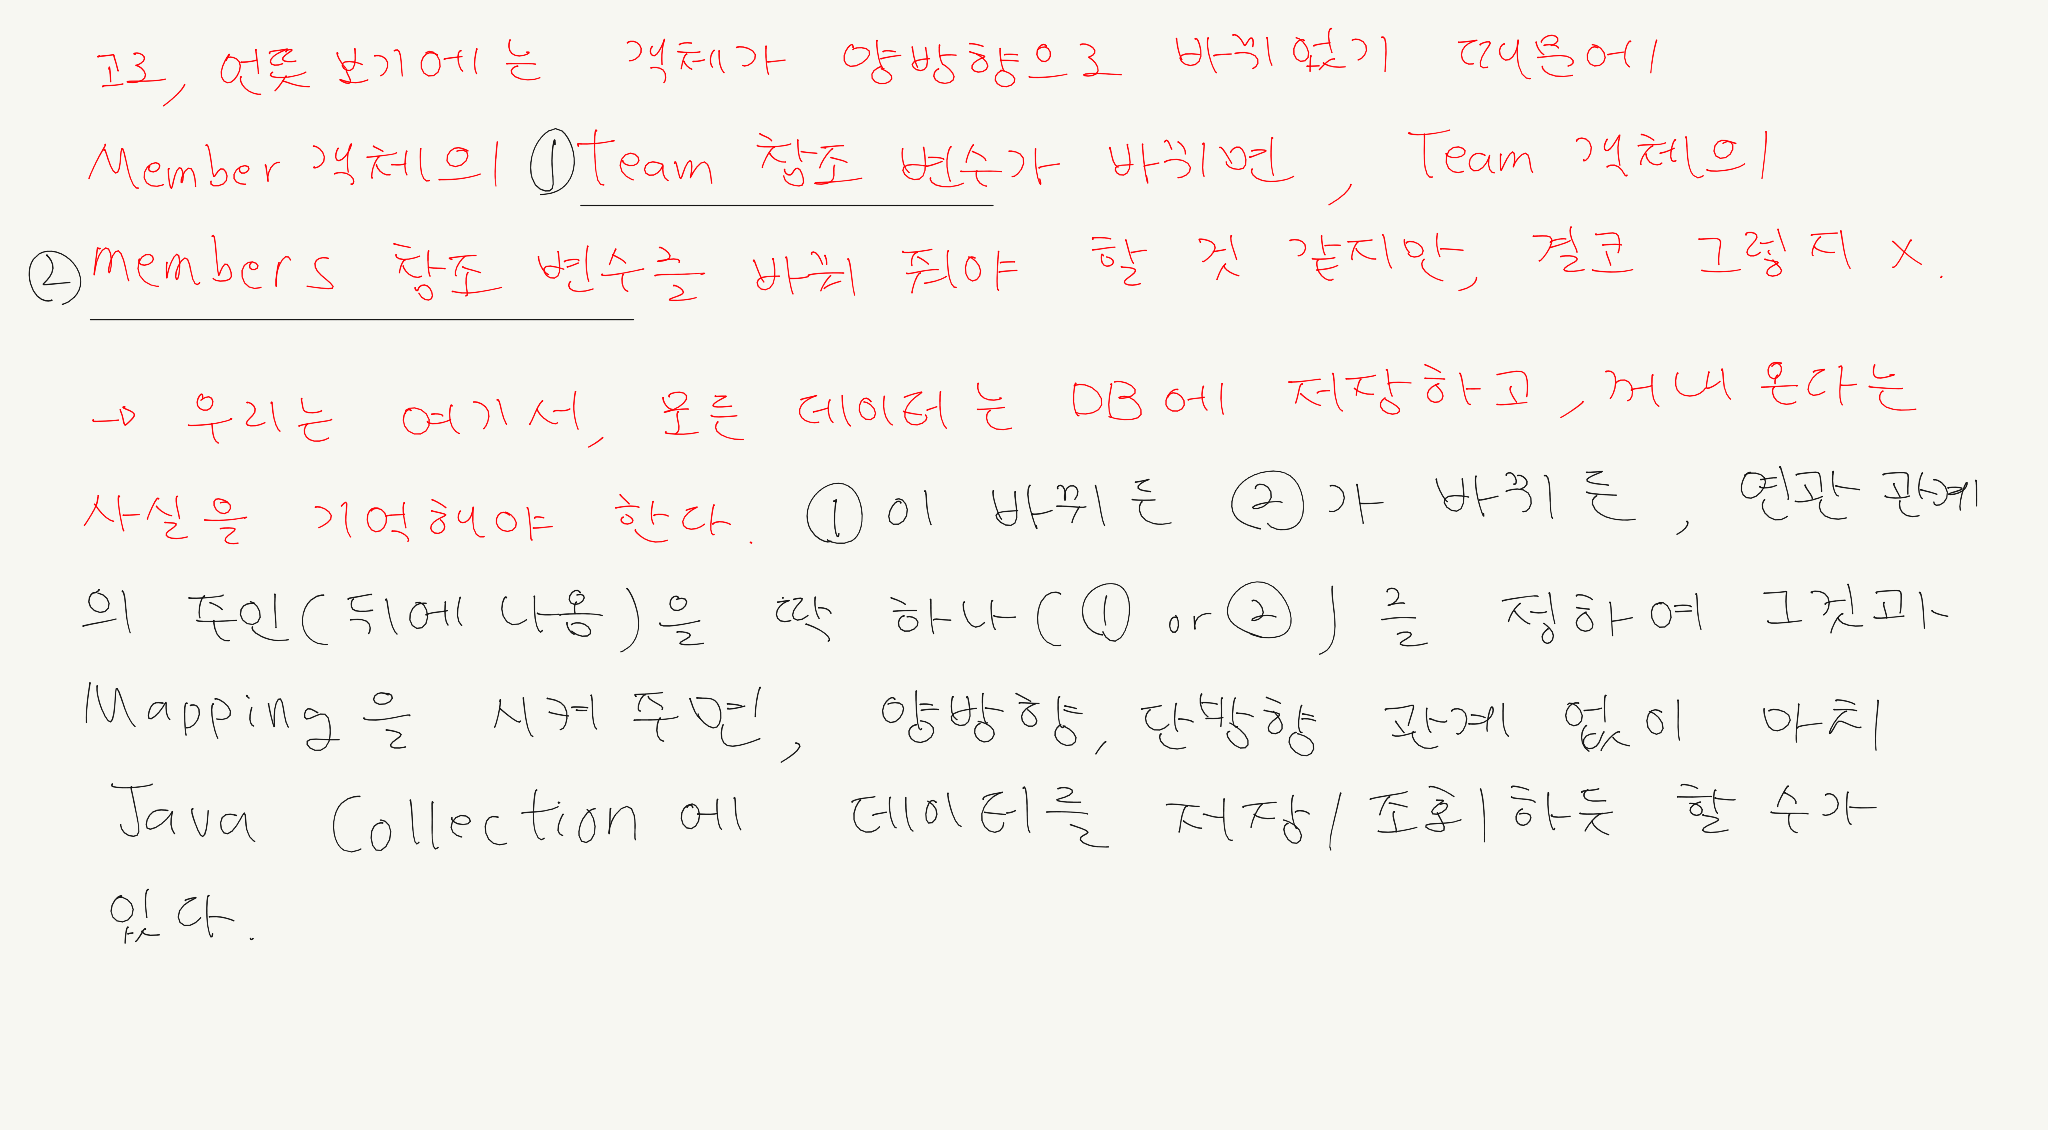 고로, 언뜻 보기에는 객체가 양방향으로 바뀌었기 때문에
Member 객체의 ① team 참조 변수가 바뀌면, Team 객체의
② members 참조 변수를 바꿔 줘야 할 것 같지만, 결코 그렇지 X.
→ 우리는 여기서, 모든 데이터는 DB에 저장하고, 꺼내 온다는
사실을 기억해야 한다. ①이 바뀌든 ②가 바뀌든, 연관 관계
의 주인(뒤에 나옴)을 딱 하나(① or ②)를 정하여 그것과
Mapping을 시켜 주면, 양방향, 단방향 관계 없이 마치
Java Collection에 데이터를 저장/조회하듯 할 수가
있다.